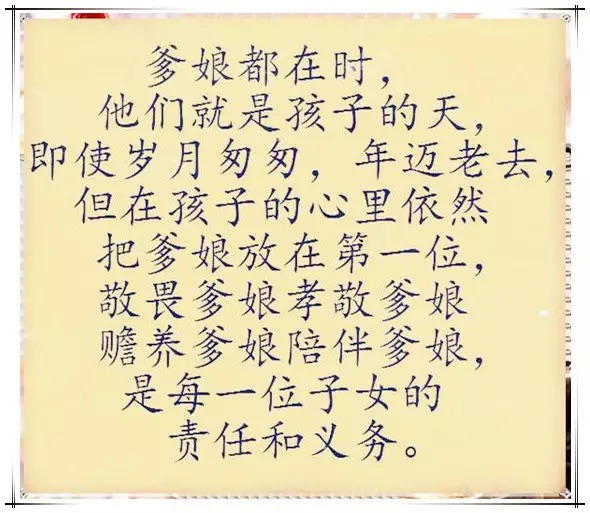 爹娘都在时，
他们就是孩子的天，
即使岁月匆匆，年迈老去，
但在孩子的心里依然
把爹娘放在第一位，
敬畏爹娘孝敬爹娘
赡养爹娘陪伴爹娘，
是每一位子女的
责任和义务。